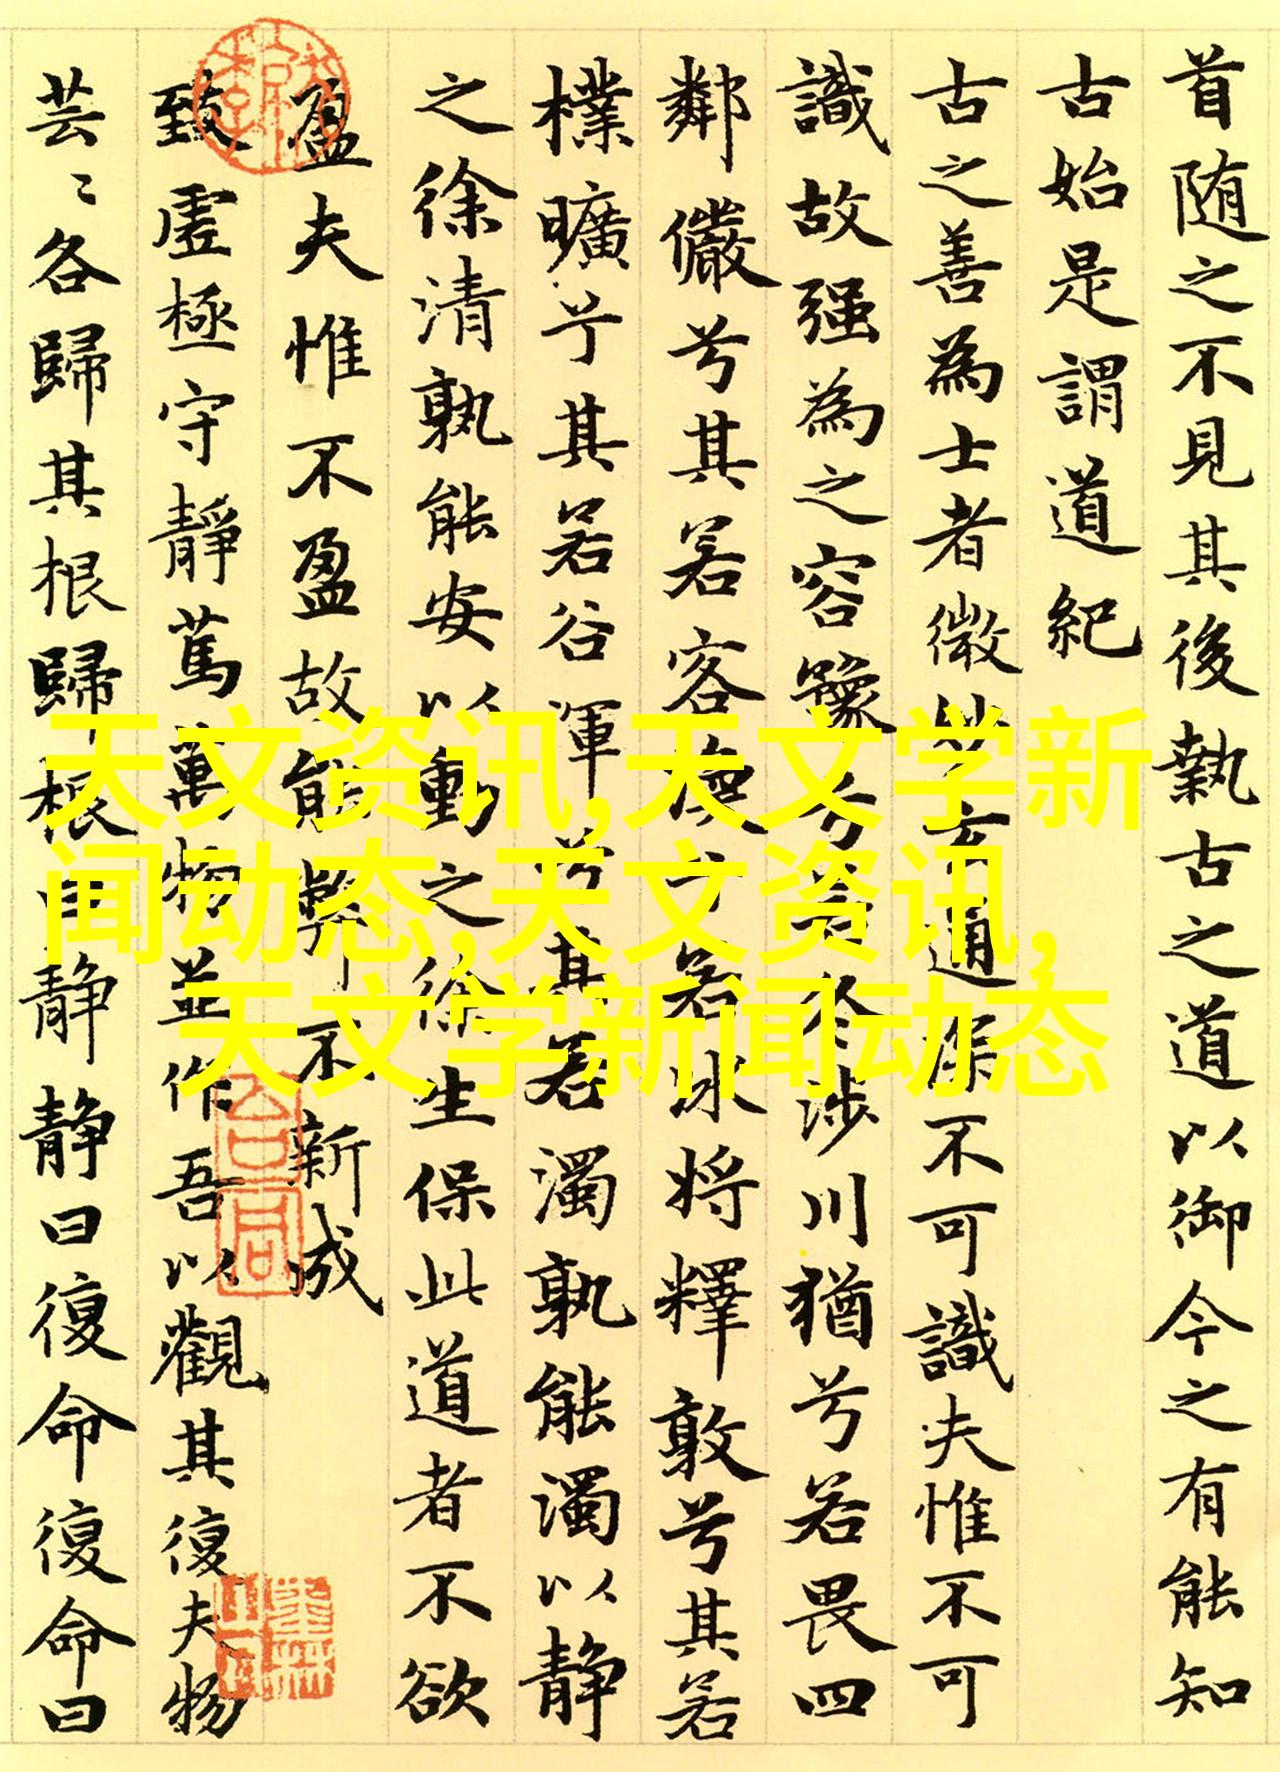 首随之不見其後執古之道以御今之有能知
古始是謂道紀
古之善為士者微妙玄通深不可識夫惟不可
識故强為之容豫兮若冬涉川猶兮若畏四
鄰儼兮其若客渙兮若冰将釋敦兮其若
樸曠兮其若谷渾兮其若濁孰能濁以静
之徐清孰能安以動之徐生保此道者不欲
盈夫惟不盈故能弊不新成
致虛極守靜篤萬物並作吾以觀其復夫物
芸〻各歸其根歸根曰静静曰復命復命曰
天文资讯,天文学新
闻动态,天文资讯,
天文学新闻动态